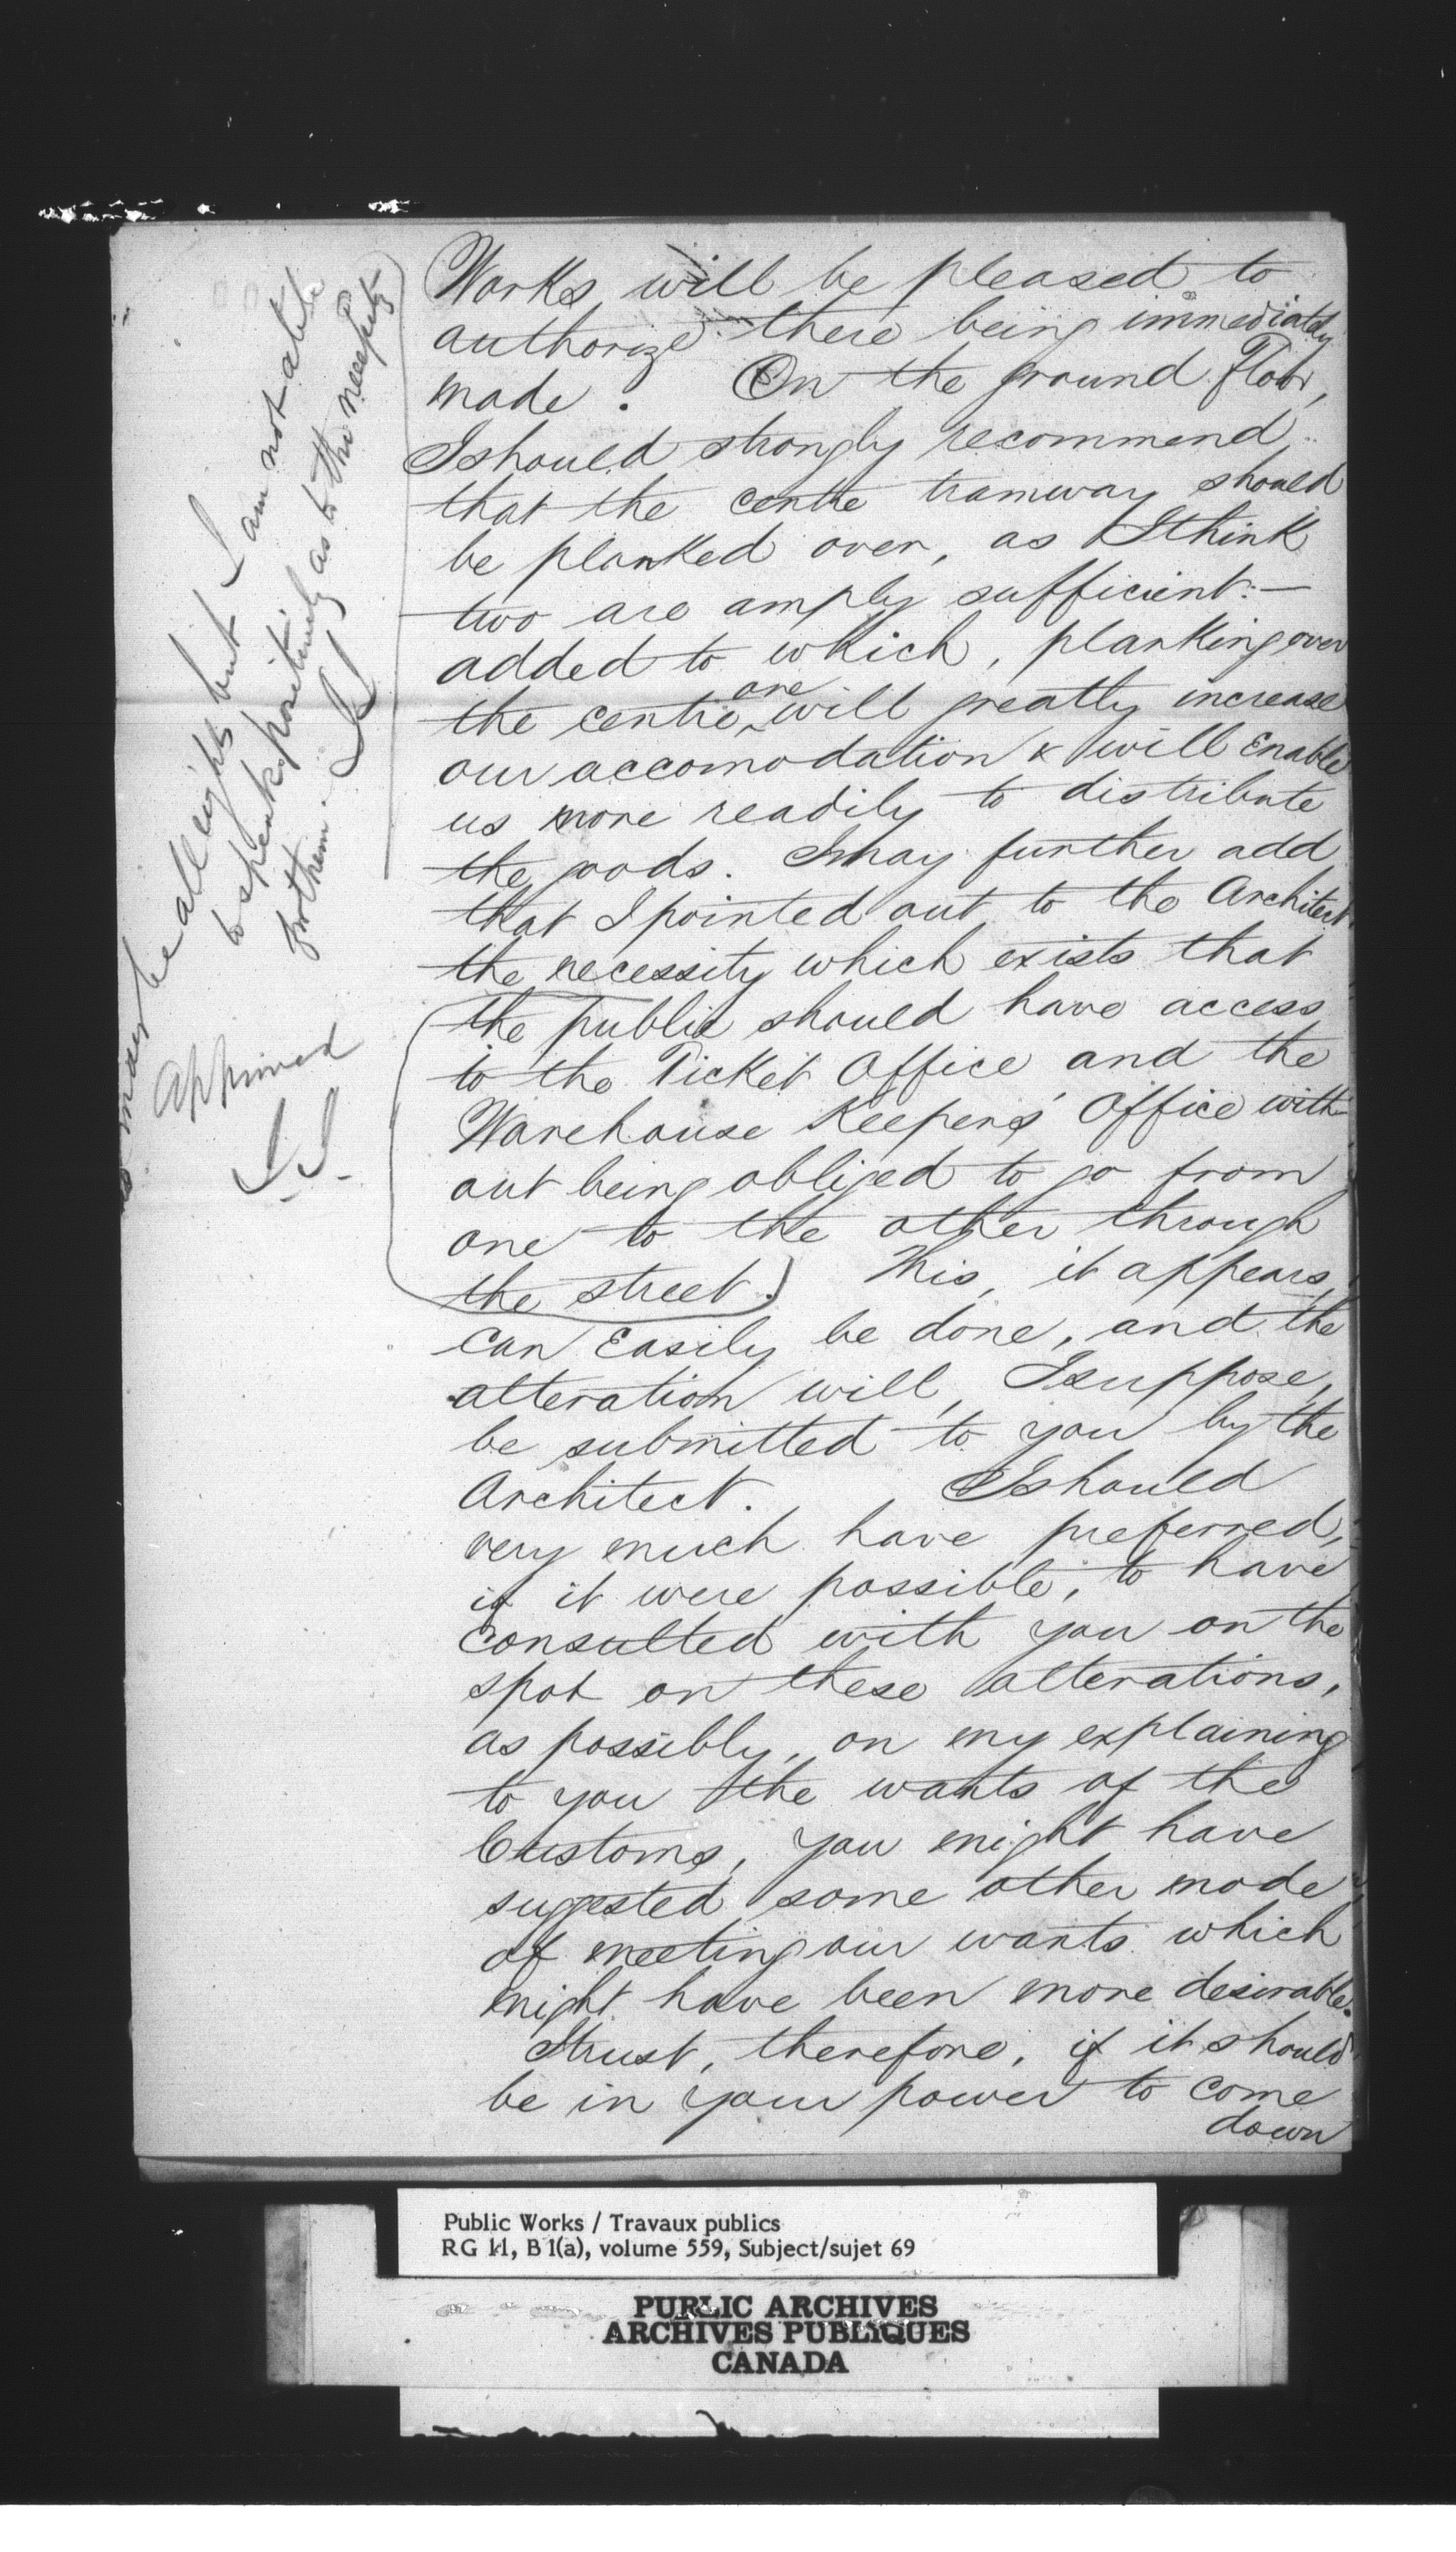 Works will be pleased to
authorize there being immediately
made. On the ground floor,
I should strongly recommend
that the centre tramway should
be planked over, as I think
two are amply sufficient:—
added to which, planking over
the centre one will greatly increase
our accomodation & will enable
us more readily to distribute
the goods. I may further add
that I pointed out to the Architect
the necessity which exists that
the public should have access
to the Ticket Office and the
Warehouse Keeper's Office with-
out being obliged to go from
one to the other through
the street. This, it appears,
can easily be done, and the
alteration will, I suppose,
be submitted to you by the
Architect. I should
very much have preferred,
if it were possible, to have
consulted with you on the
spot on these alterations,
as possibly, on my explaining
to you the wants of the
Customs, you might have
suggested some other mode
of meeting our wants which
might have been more desirable.
I trust, therefore, if it should
be in your power to come
down
may be all right but I am not able
to speak positively as to the necessity
for them.
Approved
Public Works / Travaux publics
RG 11, B 1(a), volume 559, Subject/sujet 69
PUBLIC ARCHIVES
ARCHIVES PUBLIQUES
CANADA